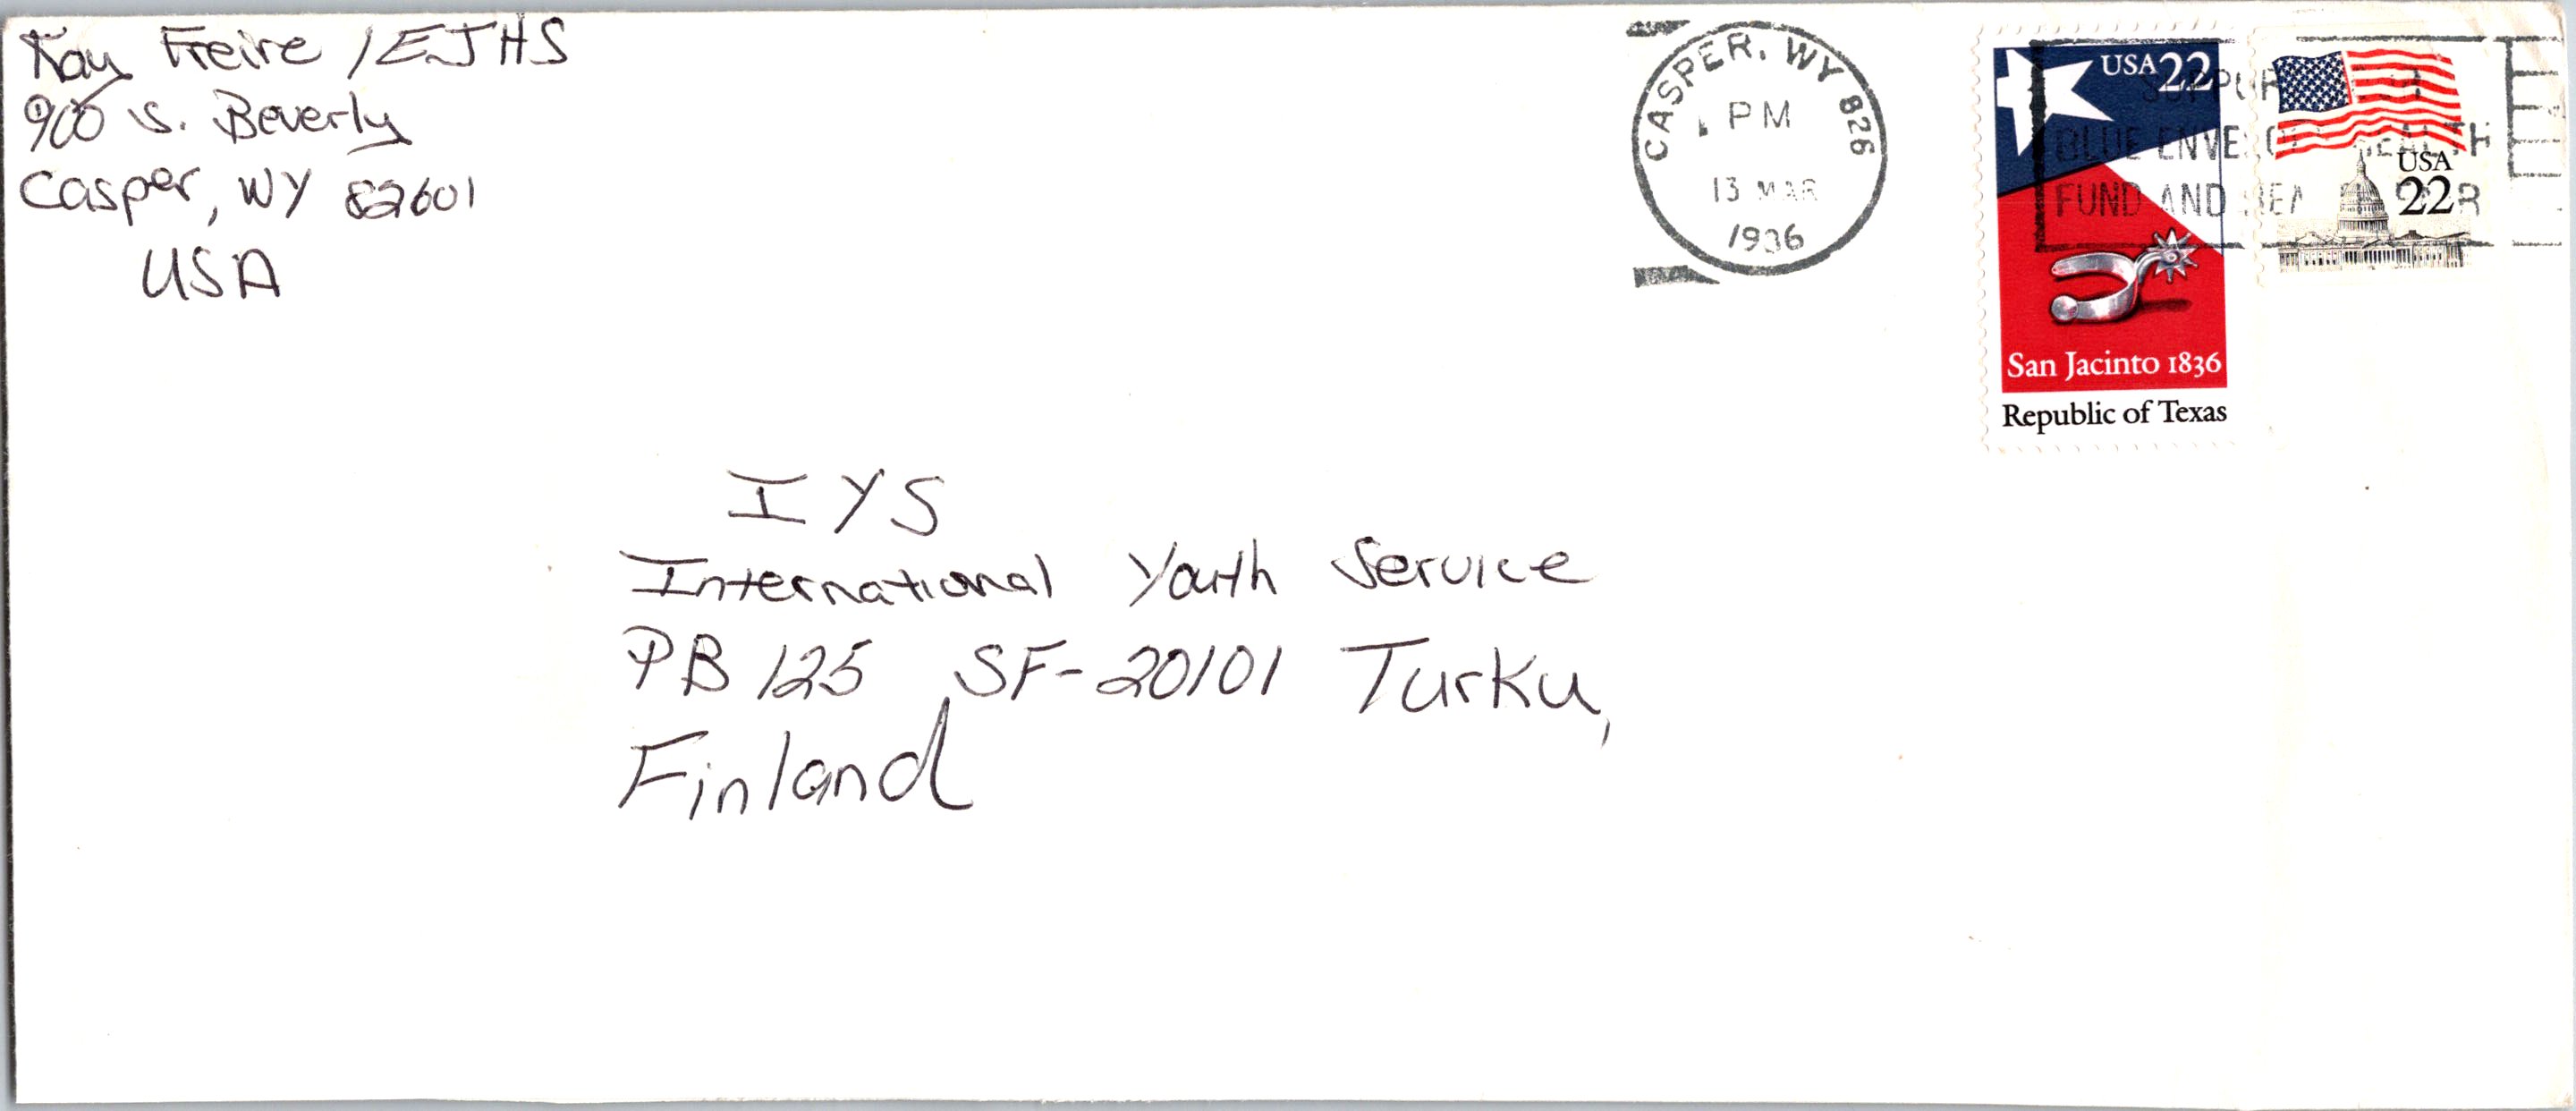 Kay Freire / EJHS
900 S. Beverly
Casper, WY 82601
USA
CASPER, WY 826
PM
13 MAR
1986
BLUE ENVELOPE HEALTH
FUND AND
USA 22
San Jacinto 1836
Republic of Texas
USA
22
IYS
International Youth Service
PB 125 SF-20101 Turku,
Finland